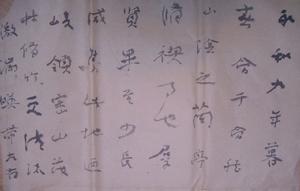 永和九年暮
春會于會稽
山陰之蘭亭
脩禊事也羣
賢畢至少長
咸集此地迺
峻領崇山茂
林脩竹更清流
激湍暎帶左右